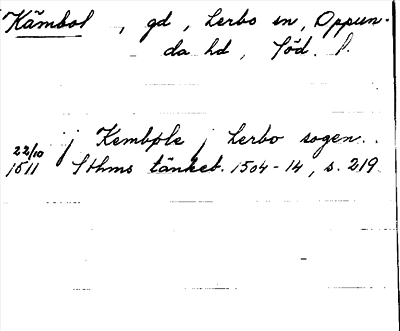 Kämbol, gd, Lerbo sn, Oppun-
da hd, Söd. l.
22/10 j Kembøle j Lerbo sogen..
1511 Sthms tänkeb. 1504-14, s. 219